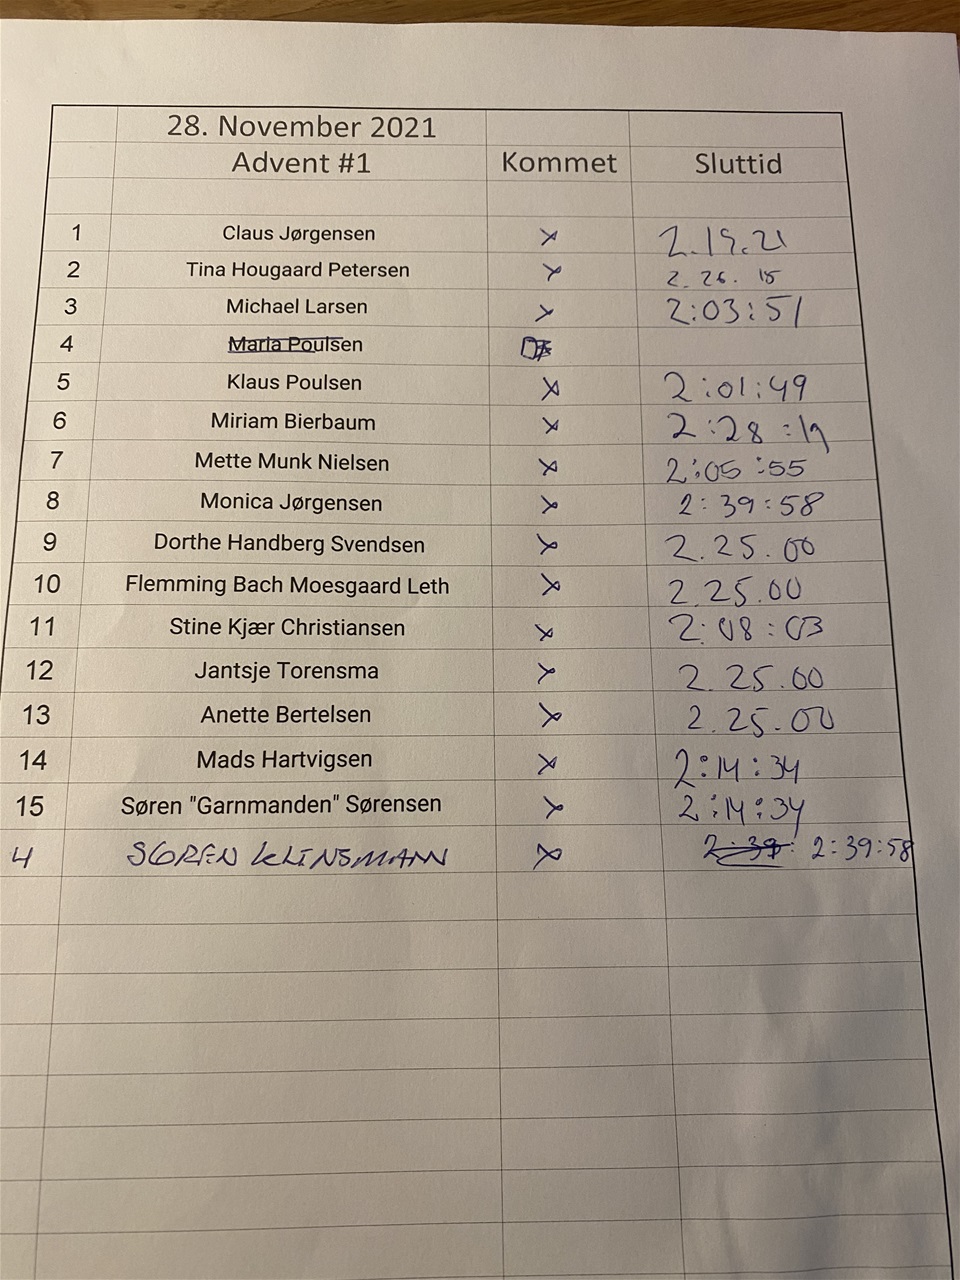 28. November 2021
Advent #1 Kommet Sluttid
1 Claus Jørgensen x 2.19.21
2 Tina Hougaard Petersen x 2.26.15
3 Michael Larsen x 2:03:51
4 Maria Poulsen
5 Klaus Poulsen x 2:01:49
6 Miriam Bierbaum x 2:28:19
7 Mette Munk Nielsen x 2:05:55
8 Monica Jørgensen x 2:39:58
9 Dorthe Handberg Svendsen x 2.25.00
10 Flemming Bach Moesgaard Leth x 2.25.00
11 Stine Kjær Christiansen x 2:08:03
12 Jantsje Torensma x 2.25.00
13 Anette Bertelsen x 2.25.00
14 Mads Hartvigsen x 2:14:34
15 Søren "Garnmanden" Sørensen x 2:14:34
4 SØREN KLINSMANN x 2:39: 2:39:58